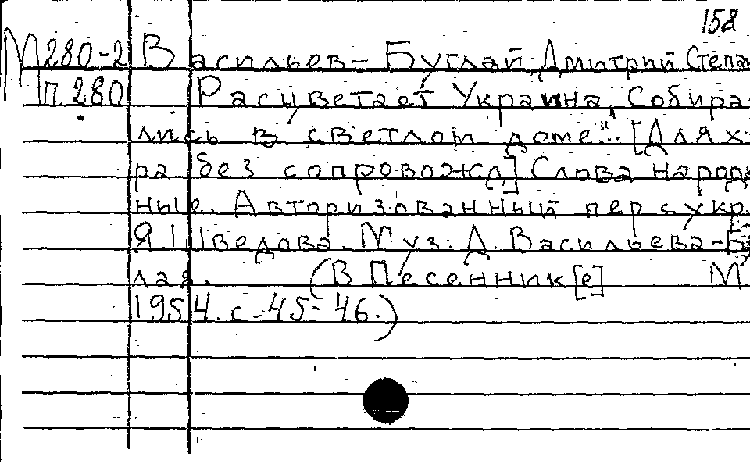 158
М280-2 Васильев-Буглай Дмитрий Степа
П.280 Расцветает Украина, Собира
лись в светлом доме..." [Для х
ра без сопровожд] Слова народ
ные. Авторизованный пер с укр.
Я. Шведова. Муз. Д. Васильева-Б
лая. (В Песенник[е] М
1954. с. 45-46.)